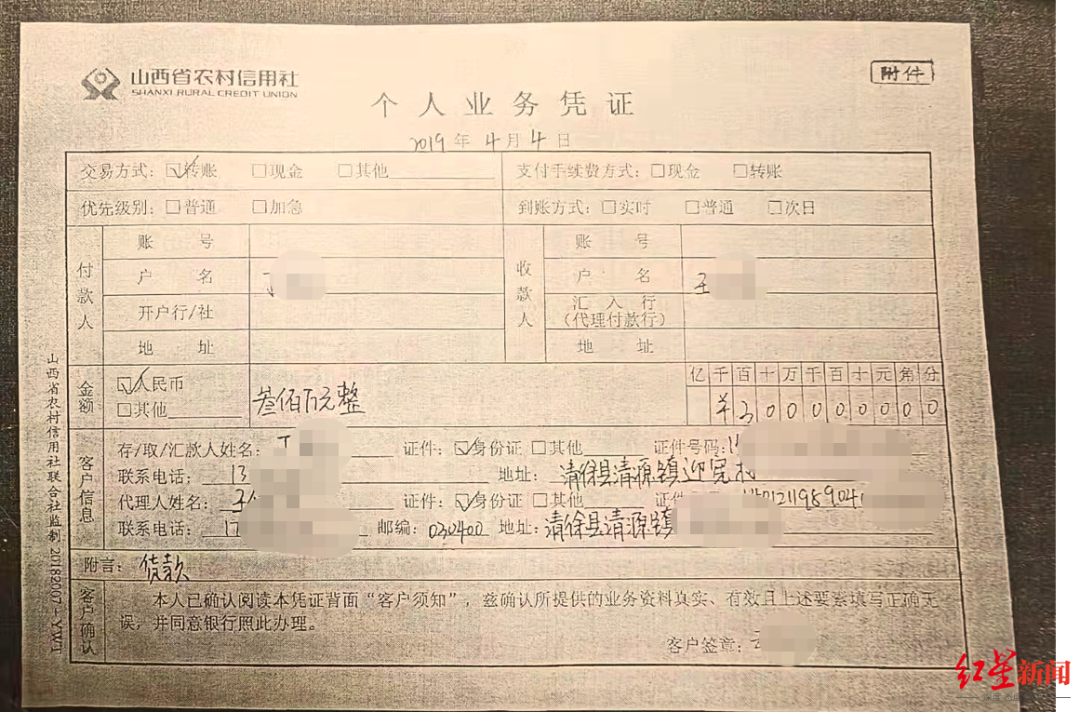 山西省农村信用社
SHANXI RURAL CREDIT UNION
附件
个人业务凭证
2019年4月4日
交易方式：☑转账 □现金 □其他 支付手续费方式：□现金 □转账
优先级别：□普通 □加急 到账方式：□实时 □普通 □次日
付款人 收款人
账号 账号
户名 户名 王
开户行/社 汇入行（代理付款行）
地址 地址
金额 ☑人民币 □其他 叁佰万元整
亿千百十万千百十元角分
¥300000000
客户信息
存/取/汇款人姓名： 证件：☑身份证 □其他 证件号码：
联系电话：13 地址：清徐县清源镇迎宪村
代理人姓名： 证件：☑身份证 □其他 证件
联系电话：17 邮编：030400 地址：清徐县清源镇
附言：货款
客户确认
本人已确认阅读本凭证背面“客户须知”，兹确认所提供的业务资料真实、有效且上述要素填写正确无
误，并同意银行照此办理。
客户签章：
山西省农村信用社联合社监制 20182007-YW1
红星新闻